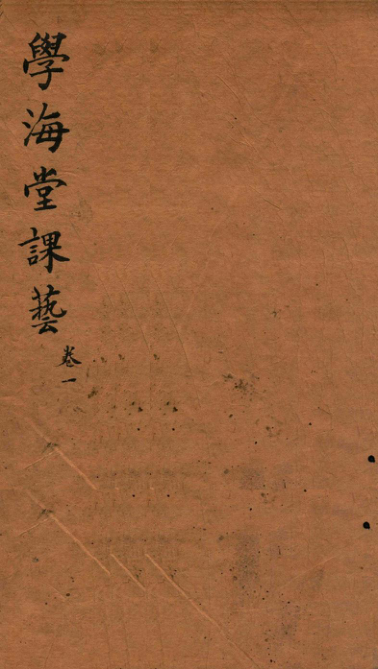 學海堂課藝
卷一